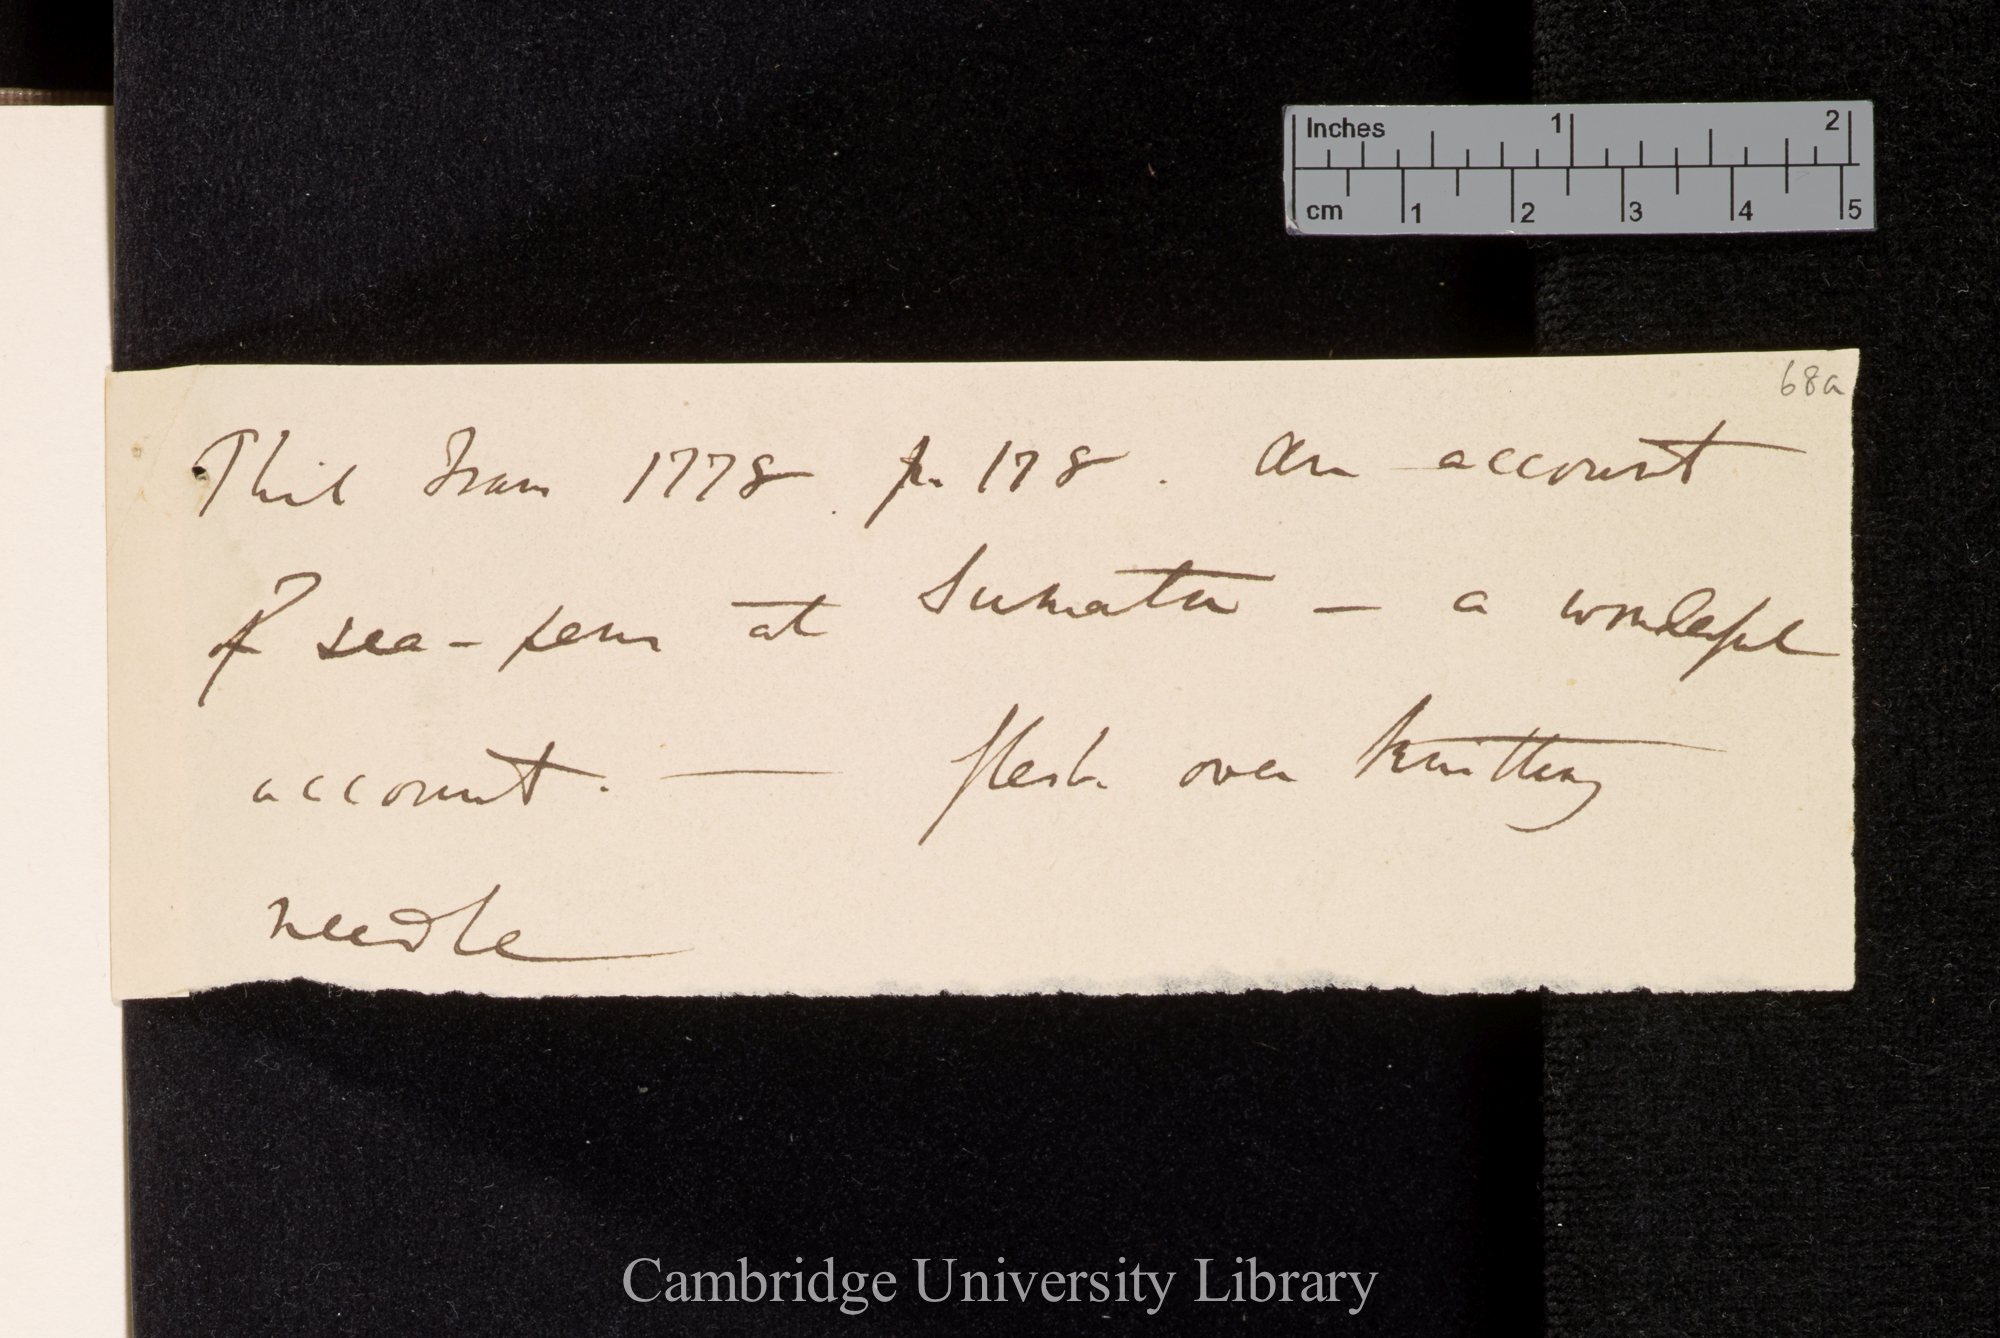 Inches 1 2
cm 1 2 3 4 5
68a
Phil Trans 1778. p. 178. An account
of sea-pens at Sumatra — a wonderful
account. — flesh over knitting
needle
Cambridge University Library